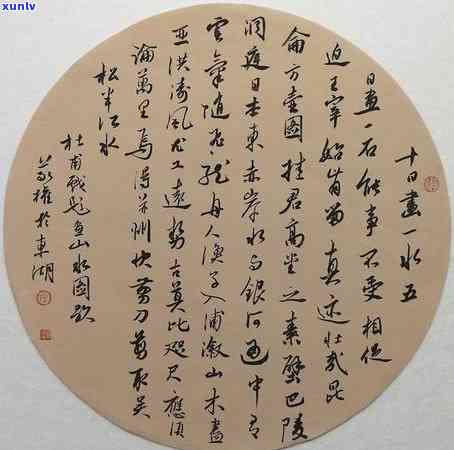 xunlv
十日畫一水五
日畫一石能事不受相促
迫王宰始肯留真迹壯哉昆
侖方壺圖挂君高堂之素壁巴陵
洞庭日本東赤岸水与銀河通中有
雲氣隨飛龍舟人漁子入浦漵山木盡
亞洪濤風尤工遠勢古莫比咫尺應須
論萬里焉得并州快剪刀剪取吴
松半江水
杜甫戲題畫山水圖歌
權於東湖